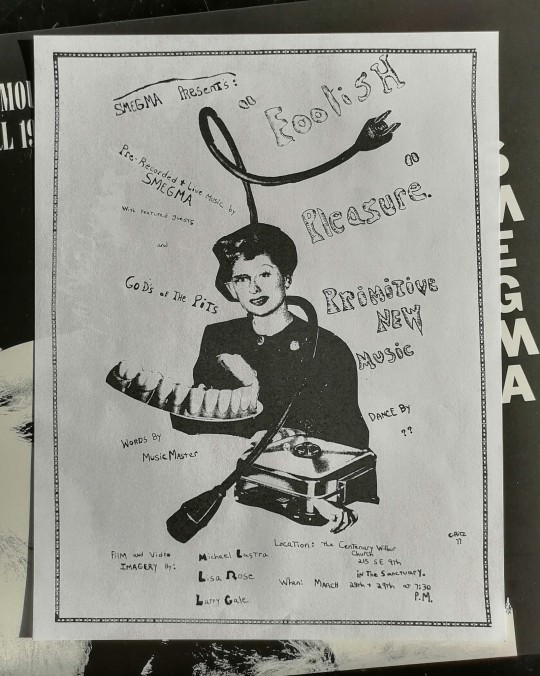 SMEGMA PRESENTS:
"FOOlisH
Pleasure."
Pre-Recorded + Live Music by
SMEGMA
With Featured guests
and
GOD's of THE PiTs
PRimiTive
NEW
Music
DANCE BY
??
WORDS BY
Music Master
Film and Video
IMAGERY By:
Michael Lastra
Lisa Rose
Larry Gale
Location: The Centenary Wilbur
Church
215 SE 9th
in The Sanctuary.
When: MARCH 28th + 29th @ 7:30
P.M.
SMEGMA